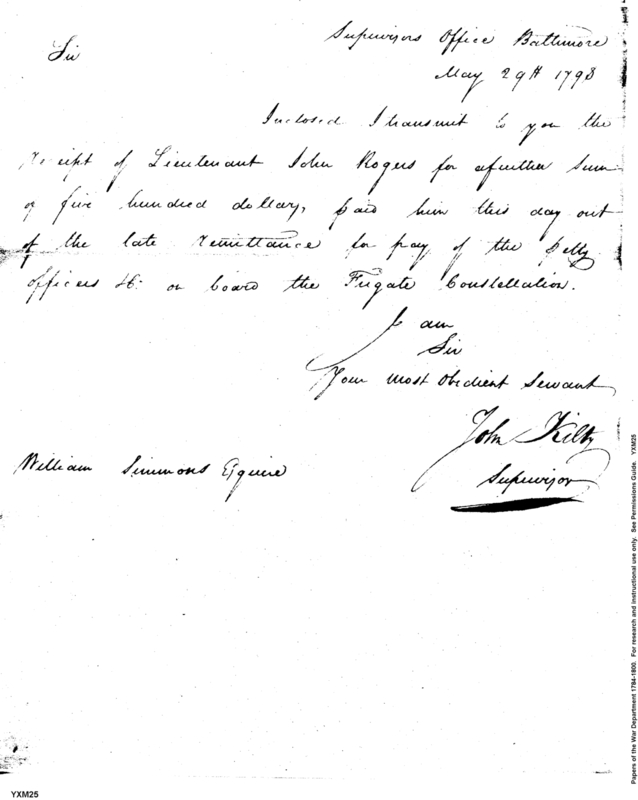 Supervisors Office Baltimore
May 29th 1798
Sir
Inclosed I transmit to you the
Receipt of Lieutenant John Rogers for a further Sum
of five hundred dollars, paid him this day out
of the late remittance for pay of the petty
officers &c. on board the Frigate Constellation.
I am
Sir
Your most Obedient Servant
John Kilty
Supervisor
William Simmons Esquire
Papers of the War Department 1784-1800. For research and instructional use only. See Permissions Guide. YXM25
YXM25